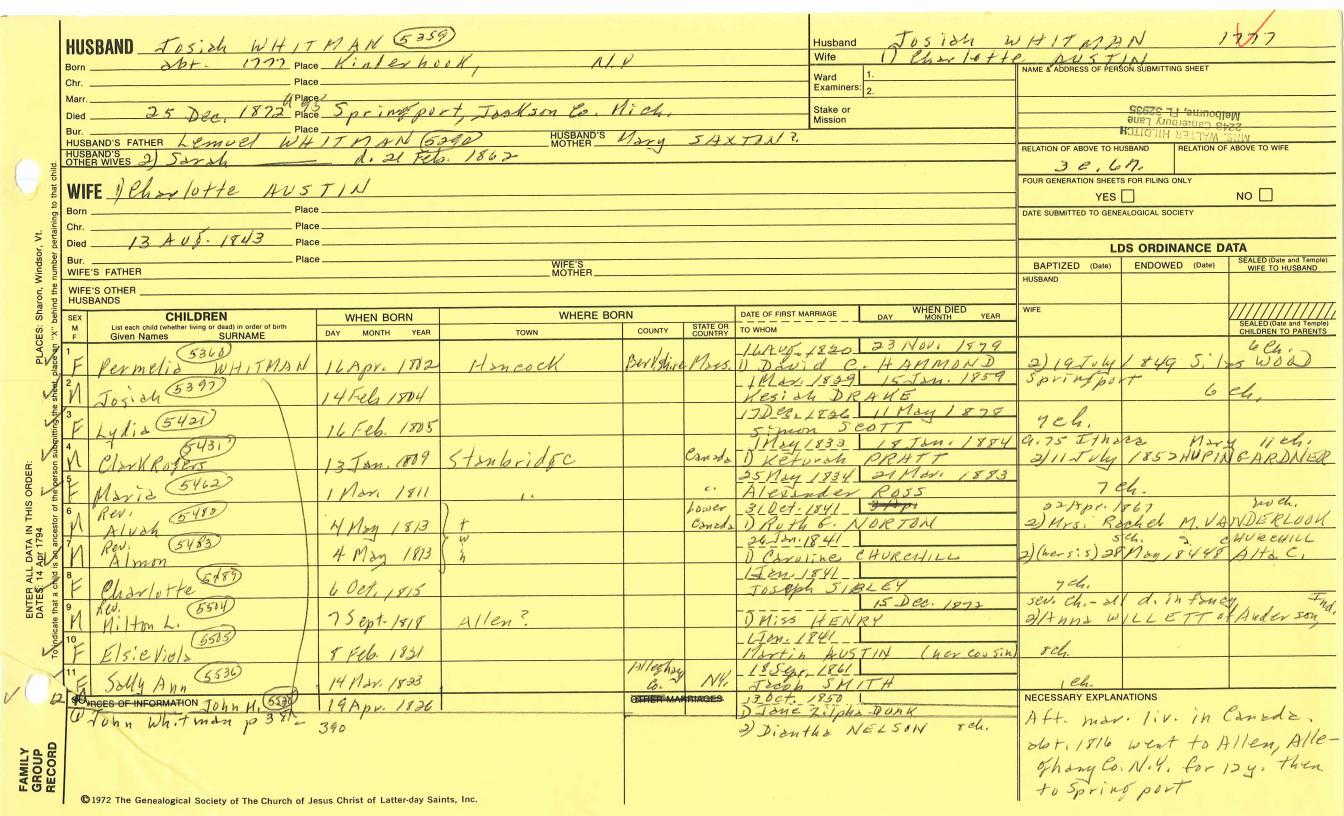 HUSBAND Josiah WHITMAN 5359
Born abt. 1777 Place Kinderhook, N.Y
Chr. Place
Marr. Place
Died 25 Dec. 1872 Place Springport, Jackson Co. Mich.
Bur. Place
HUSBAND'S FATHER Lemuel WHITMAN 5290 HUSBAND'S MOTHER Mary SAXTIN?
HUSBAND'S OTHER WIVES 2) Sarah d. 21 Feb. 1862
WIFE 1) Charlotte AUSTIN
Born Place
Chr. Place
Died 13 Aug. 1843 Place
Bur. Place
WIFE'S FATHER WIFE'S MOTHER
WIFE'S OTHER HUSBANDS
Husband Josiah WHITMAN 1777
Wife 1) Charlotte AUSTIN
Ward Examiners: 1. 2.
Stake or Mission
NAME & ADDRESS OF PERSON SUBMITTING SHEET
MRS. WALTER HILDITCH
2248 Canterbury Lane
Melbourne, FL 32935
RELATION OF ABOVE TO HUSBAND RELATION OF ABOVE TO WIFE
3c. 6r.
FOUR GENERATION SHEETS FOR FILING ONLY
YES NO
DATE SUBMITTED TO GENEALOGICAL SOCIETY
LDS ORDINANCE DATA
BAPTIZED (Date) ENDOWED (Date) SEALED (Date and Temple) WIFE TO HUSBAND
HUSBAND
WIFE
SEALED (Date and Temple) CHILDREN TO PARENTS
SEX M F CHILDREN WHEN BORN WHERE BORN DATE OF FIRST MARRIAGE WHEN DIED
List each child (whether living or dead) in order of birth
Given Names SURNAME DAY MONTH YEAR TOWN COUNTY STATE OR COUNTRY TO WHOM DAY MONTH YEAR
1 5360 16 Aug. 1820 23 Nov. 1879 6 ch.
F Permelia WHITMAN 16 Apr. 1802 Hancock Berkshire Mass. 1) David C. HAMMOND 2) 19 July 1849 Silas WOOD
2 5397 1 Mar. 1829 15 Jan. 1859 Springport
M Josiah 14 Feb 1804 Kesiah DRAKE 6 ch.
3 5421 17 Dec. 1826 11 May 1878
F Lydia 16 Feb. 1805 Simon SCOTT 7 ch.
4 5431 1 May 1833 18 Jan. 1884 a. 75 Ithaca Mary 11 ch.
M Clark Rogers 13 Jan. 1809 Stanbridge Canada 1) Keturah PRATT 2) 11 July 1852 HUPINGARDNER
5 5462 25 May 1834 21 Mar. 1883
F Maria 1 Mar. 1811 " " Alexander ROSS 7 ch.
6 Rev. 5480 Lower 31 Oct. 1841 22 Apr. 1867 no ch.
Alvah 4 May 1813 twin Canada 1) Ruth G. NORTON 2) Mrs. Rachel M. VANDERLOOK
7 Rev. 5483 26 Jan. 1841 5 ch. 2 CHURCHILL
M Almon 4 May 1813 1) Caroline CHURCHILL 2) (her sis) 28 May 1844 Alta C.
8 5489 1 Jan. 1841
F Charlotte 6 Oct. 1815 Joseph SIBLEY 7 ch.
9 Rev. 5504 15 Dec. 1872 sev. ch. - all d. infancy Ind.
M Milton L. 7 Sept. 1818 Allen? 1) Miss HENRY 2) Anna WILLETT of Anderson,
10 5505 1 Jan. 1841
F Elsie Viola 8 Feb. 1821 Martin AUSTIN (her cousin) 8 ch.
11 5536 Alleghany 18 Sep. 1861
F Sally Ann 14 Mar. 1823 Co. N.Y. Jacob SMITH 1 ch.
12 SOURCES OF INFORMATION John H. 19 Apr. 1826 OTHER MARRIAGES 3 Oct. 1850
1) John Whitman p 389- 390 1) Jane Zilpha DOAK
2) Diantha NELSON 8 ch.
NECESSARY EXPLANATIONS
Aft. mar. liv. in Canada.
abt. 1816 went to Allen, Alle-
ghany Co. N.Y. for 12 y. then
to Springport
©1972 The Genealogical Society of The Church of Jesus Christ of Latter-day Saints, Inc.
FAMILY GROUP RECORD
ENTER ALL DATA IN THIS ORDER:
DATES: 14 Apr 1794
PLACES: Sharon, Windsor, Vt.
To indicate that a child is an ancestor of the person submitting the sheet, place an "X" behind the number pertaining to that child.